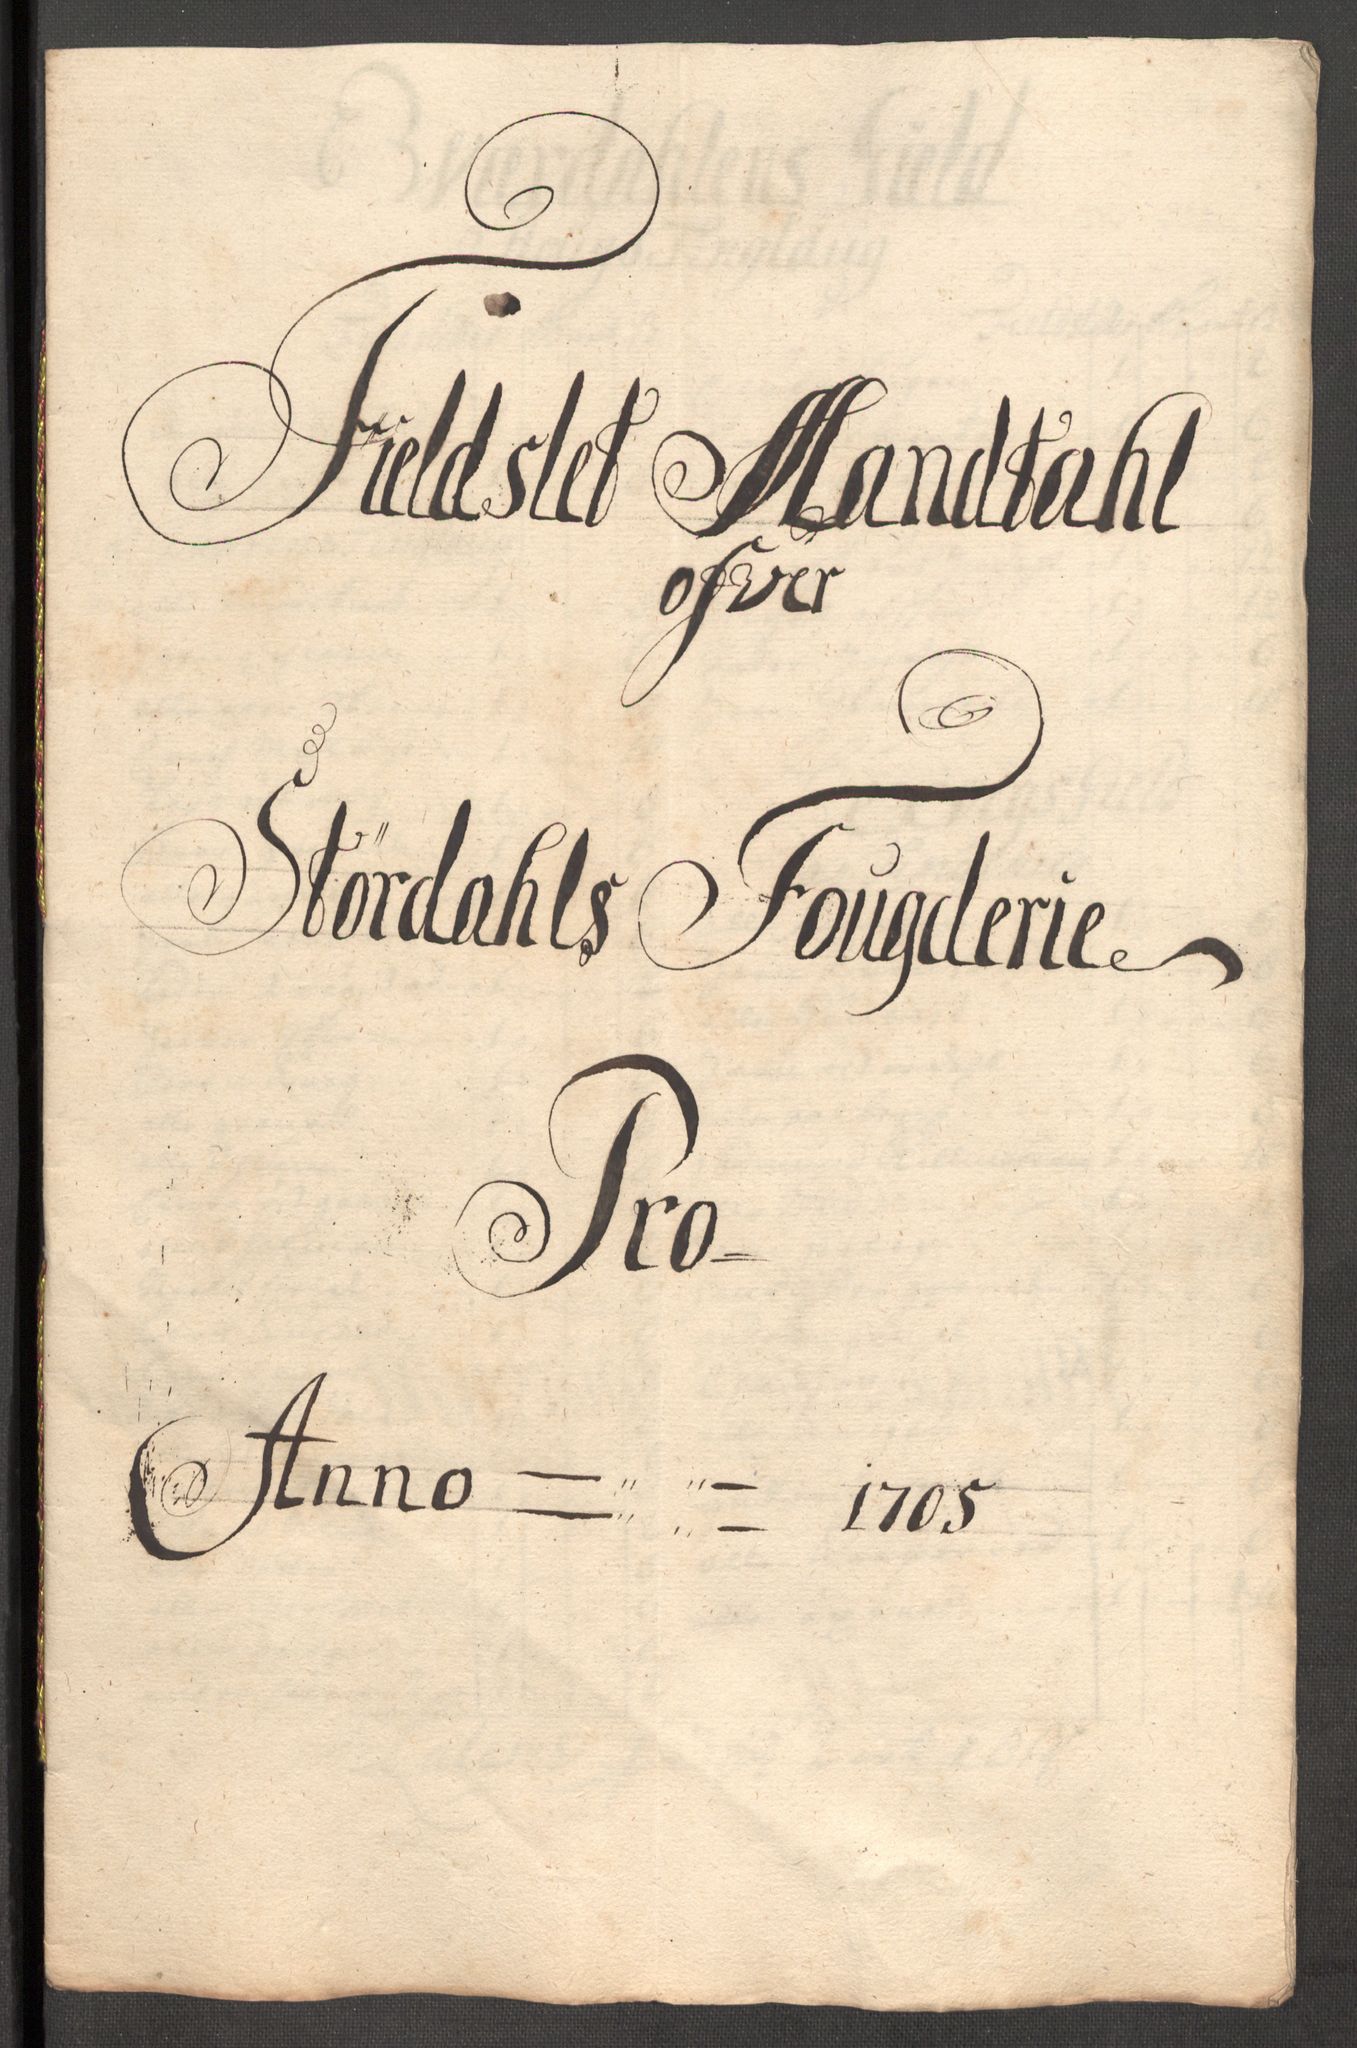 Fieldslet Mandtahl
ofver
Stördahls Fougderie
Pro
Anno 1705